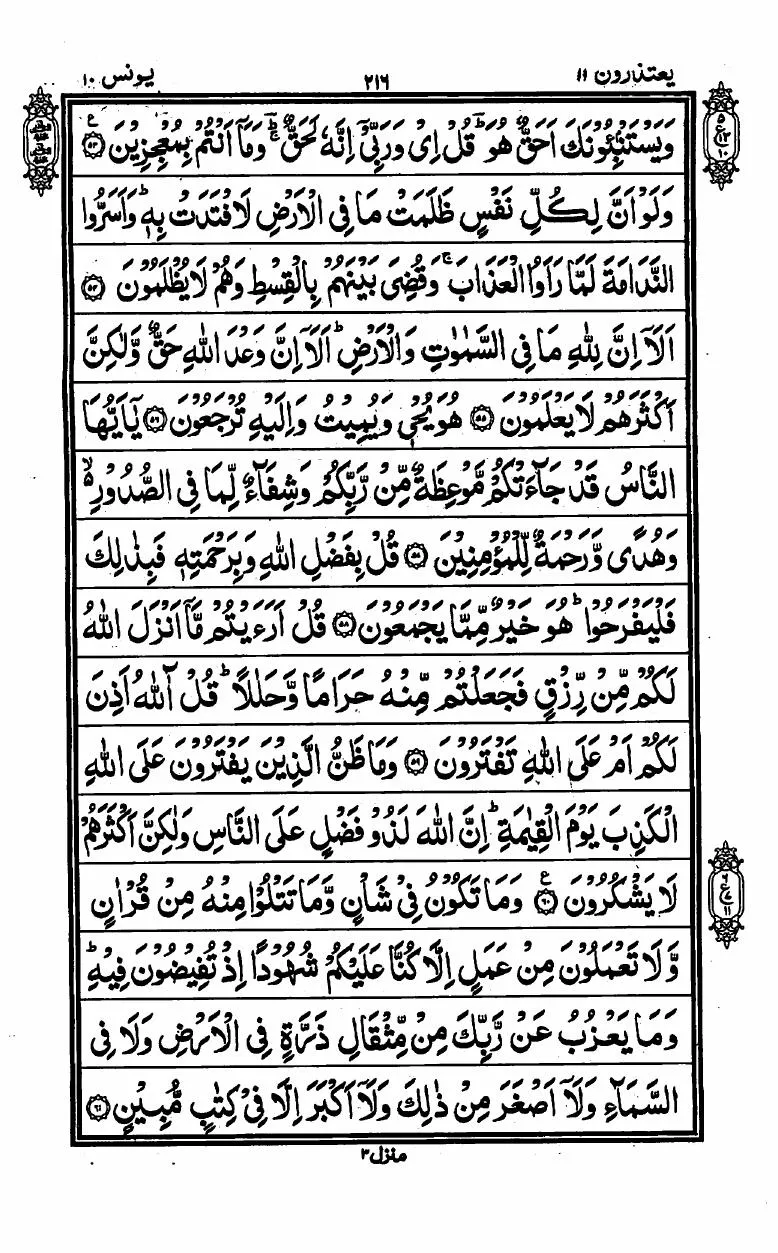 یعتذرون ۱۱
۲۱۶
یونس ۱۰
وَیَسْتَنْۢبِـُٔوْنَكَ اَحَقٌّ هُوَ ؕ قُلْ اِیْ وَرَبِّیْۤ اِنَّهٗ لَحَقٌّ ؔۚ وَمَاۤ اَنْتُمْ بِمُعْجِزِیْنَ ۟۠ ﴿۵۳﴾ ع
وَلَوْ اَنَّ لِكُلِّ نَفْسٍ ظَلَمَتْ مَا فِی الْاَرْضِ لَافْتَدَتْ بِهٖ ؕ وَاَسَرُّوا
النَّدَامَةَ لَمَّا رَاَوُا الْعَذَابَ ۚ وَقُضِیَ بَیْنَهُمْ بِالْقِسْطِ وَهُمْ لَا یُظْلَمُوْنَ ﴿۵۴﴾
اَلَاۤ اِنَّ لِلّٰهِ مَا فِی السَّمٰوٰتِ وَالْاَرْضِ ؕ اَلَاۤ اِنَّ وَعْدَ اللّٰهِ حَقٌّ وَّلٰكِنَّ
اَكْثَرَهُمْ لَا یَعْلَمُوْنَ ﴿۵۵﴾ هُوَ یُحْیٖ وَیُمِیْتُ وَاِلَیْهِ تُرْجَعُوْنَ ﴿۵۶﴾ یٰۤاَیُّهَا
النَّاسُ قَدْ جَآءَتْكُمْ مَّوْعِظَةٌ مِّنْ رَّبِّكُمْ وَشِفَآءٌ لِّمَا فِی الصُّدُوْرِ ۙ۬
وَهُدًی وَّرَحْمَةٌ لِّلْمُؤْمِنِیْنَ ﴿۵۷﴾ قُلْ بِفَضْلِ اللّٰهِ وَبِرَحْمَتِهٖ فَبِذٰلِكَ
فَلْیَفْرَحُوْا ؕ هُوَ خَیْرٌ مِّمَّا یَجْمَعُوْنَ ﴿۵۸﴾ قُلْ اَرَءَیْتُمْ مَّاۤ اَنْزَلَ اللّٰهُ
لَكُمْ مِّنْ رِّزْقٍ فَجَعَلْتُمْ مِّنْهُ حَرَامًا وَّحَلٰلًا ؕ قُلْ آٰللّٰهُ اَذِنَ
لَكُمْ اَمْ عَلَی اللّٰهِ تَفْتَرُوْنَ ﴿۵۹﴾ وَمَا ظَنُّ الَّذِیْنَ یَفْتَرُوْنَ عَلَی اللّٰهِ
الْكَذِبَ یَوْمَ الْقِیٰمَةِ ؕ اِنَّ اللّٰهَ لَذُوْ فَضْلٍ عَلَی النَّاسِ وَلٰكِنَّ اَكْثَرَهُمْ
لَا یَشْكُرُوْنَ ﴿۶۰﴾ ع وَمَا تَكُوْنُ فِیْ شَاْنٍ وَّمَا تَتْلُوْا مِنْهُ مِنْ قُرْاٰنٍ
وَّلَا تَعْمَلُوْنَ مِنْ عَمَلٍ اِلَّا كُنَّا عَلَیْكُمْ شُهُوْدًا اِذْ تُفِیْضُوْنَ فِیْهِ ؕ
وَمَا یَعْزُبُ عَنْ رَّبِّكَ مِنْ مِّثْقَالِ ذَرَّةٍ فِی الْاَرْضِ وَلَا فِی
السَّمَآءِ وَلَاۤ اَصْغَرَ مِنْ ذٰلِكَ وَلَاۤ اَكْبَرَ اِلَّا فِیْ كِتٰبٍ مُّبِیْنٍ ﴿۶۱﴾
۵
ع ۱۳
۱۰
۶
ع ۷
۱۱
منزل ۳